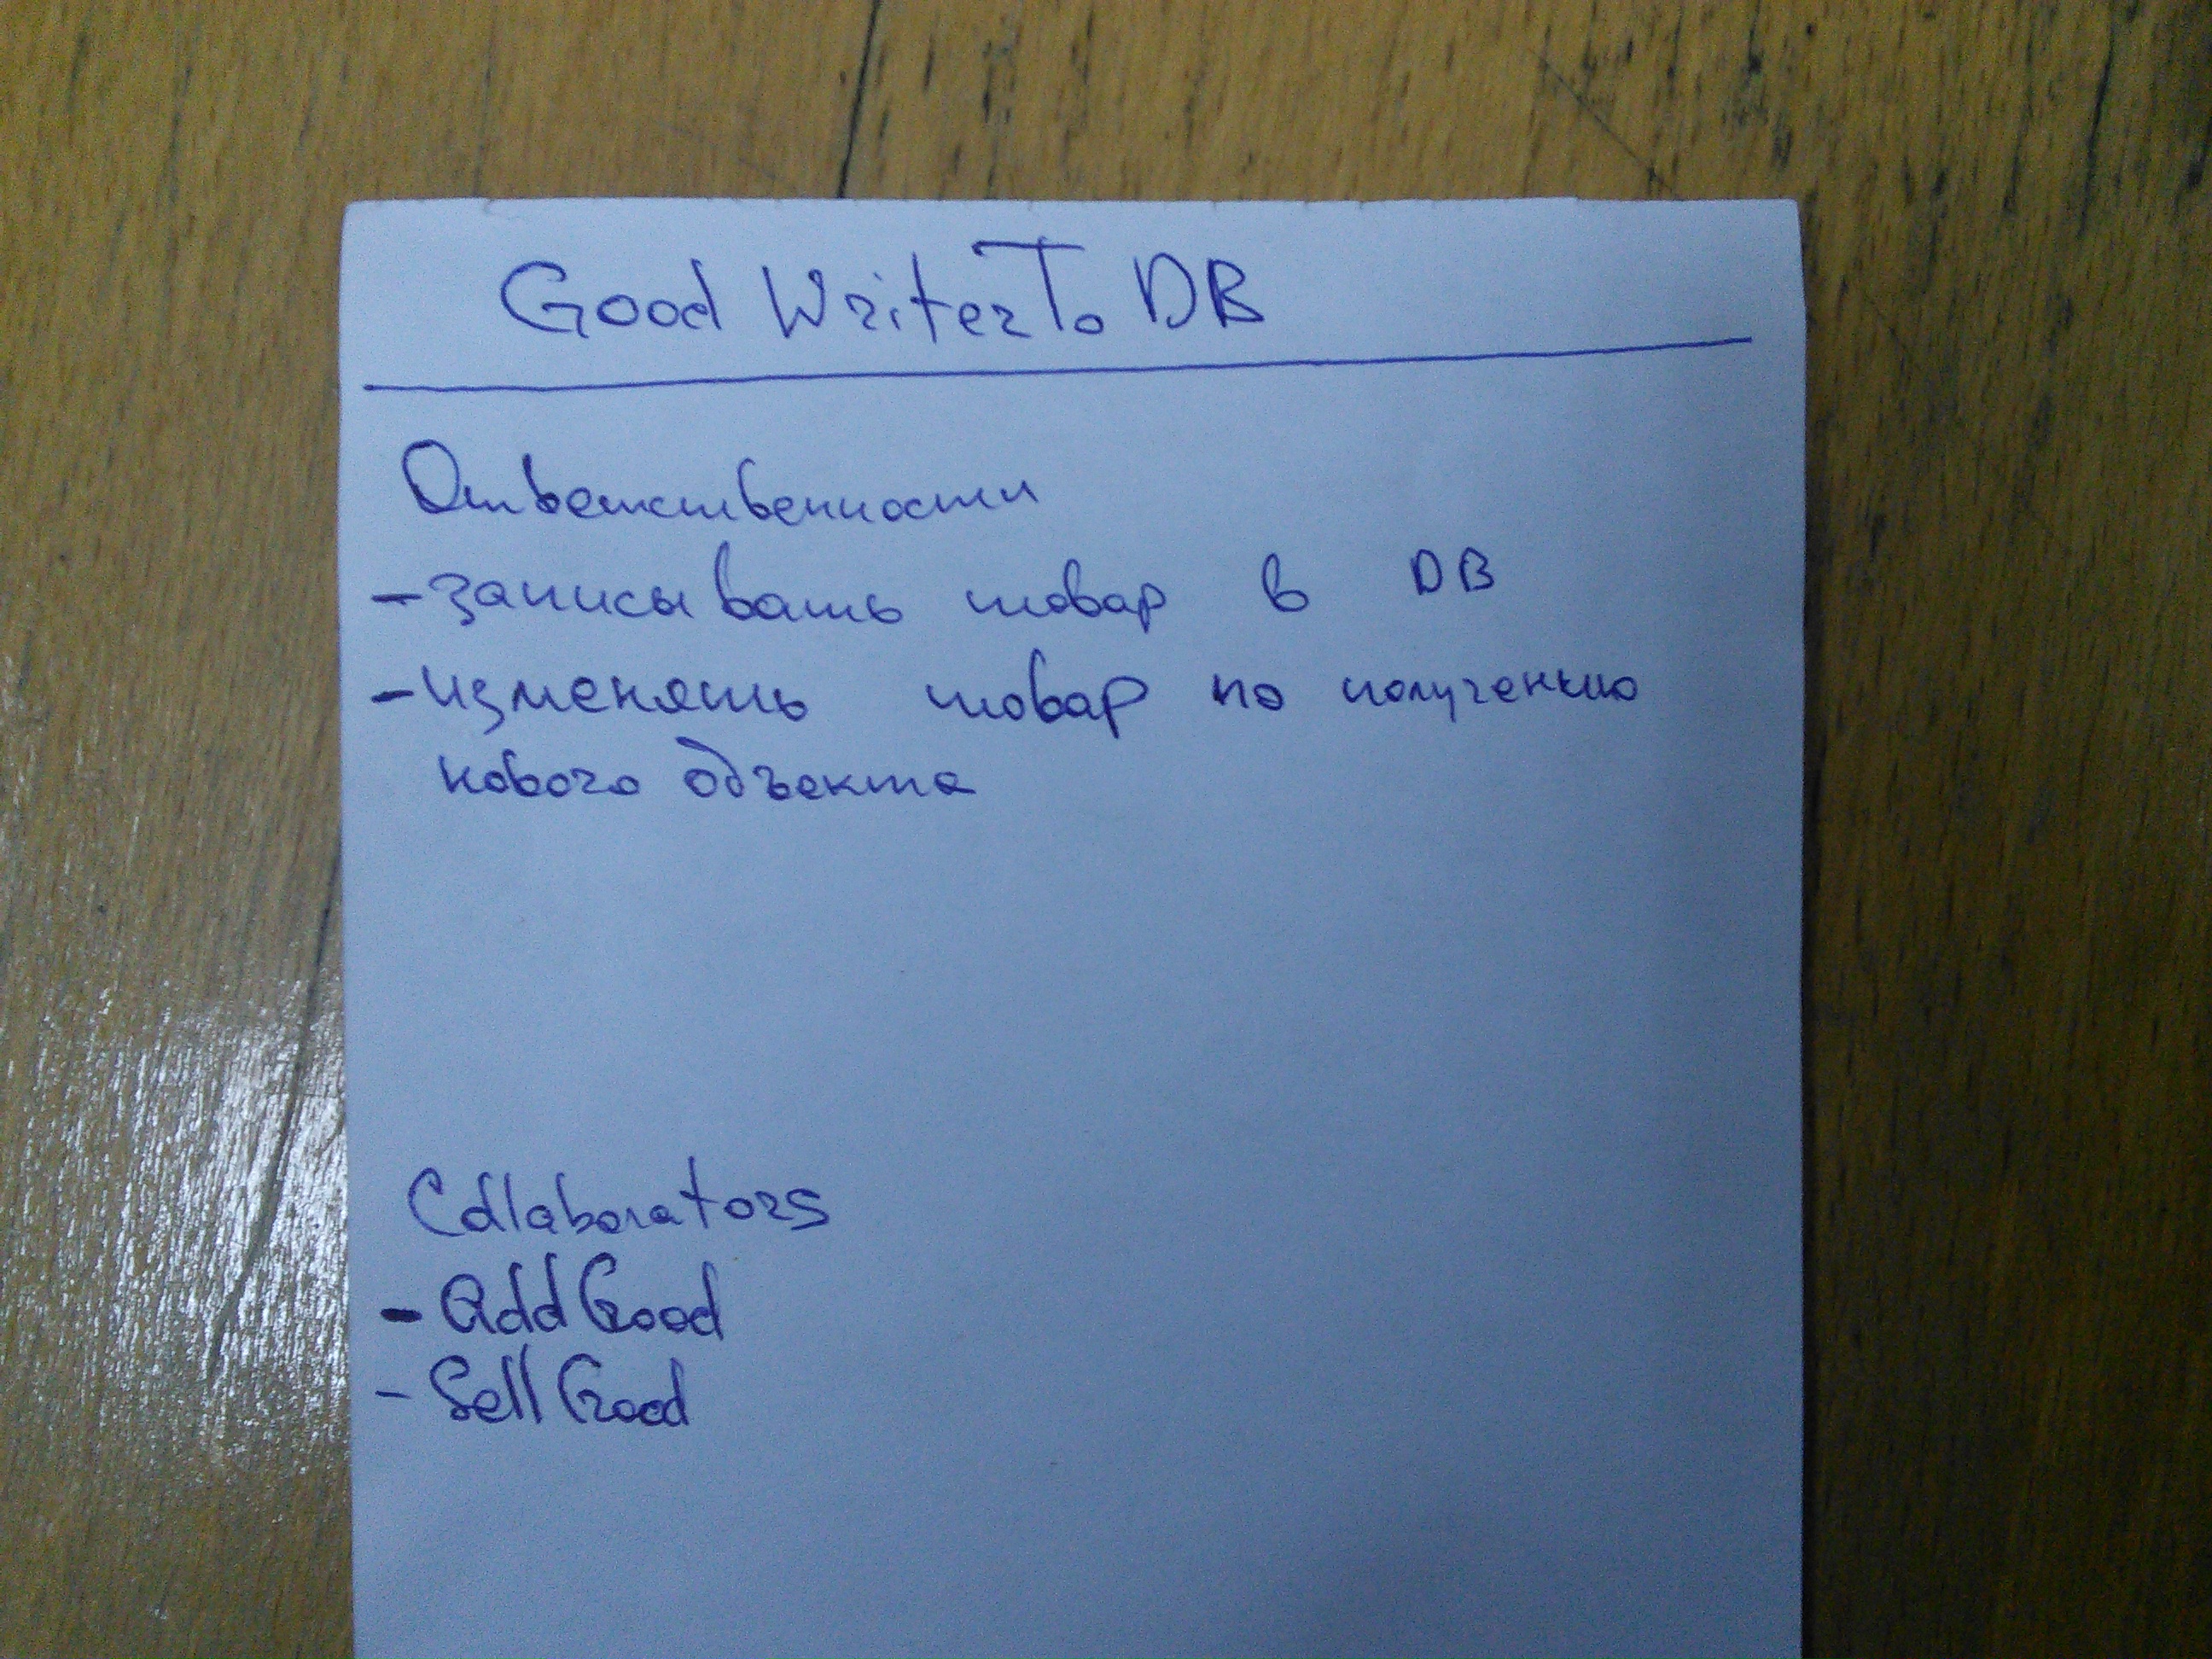 Good WriterTo DB
Ответственности
- записывать товар в DB
- изменять товар по получению
нового объекта
Collaborators
- AddGood
- SellGood